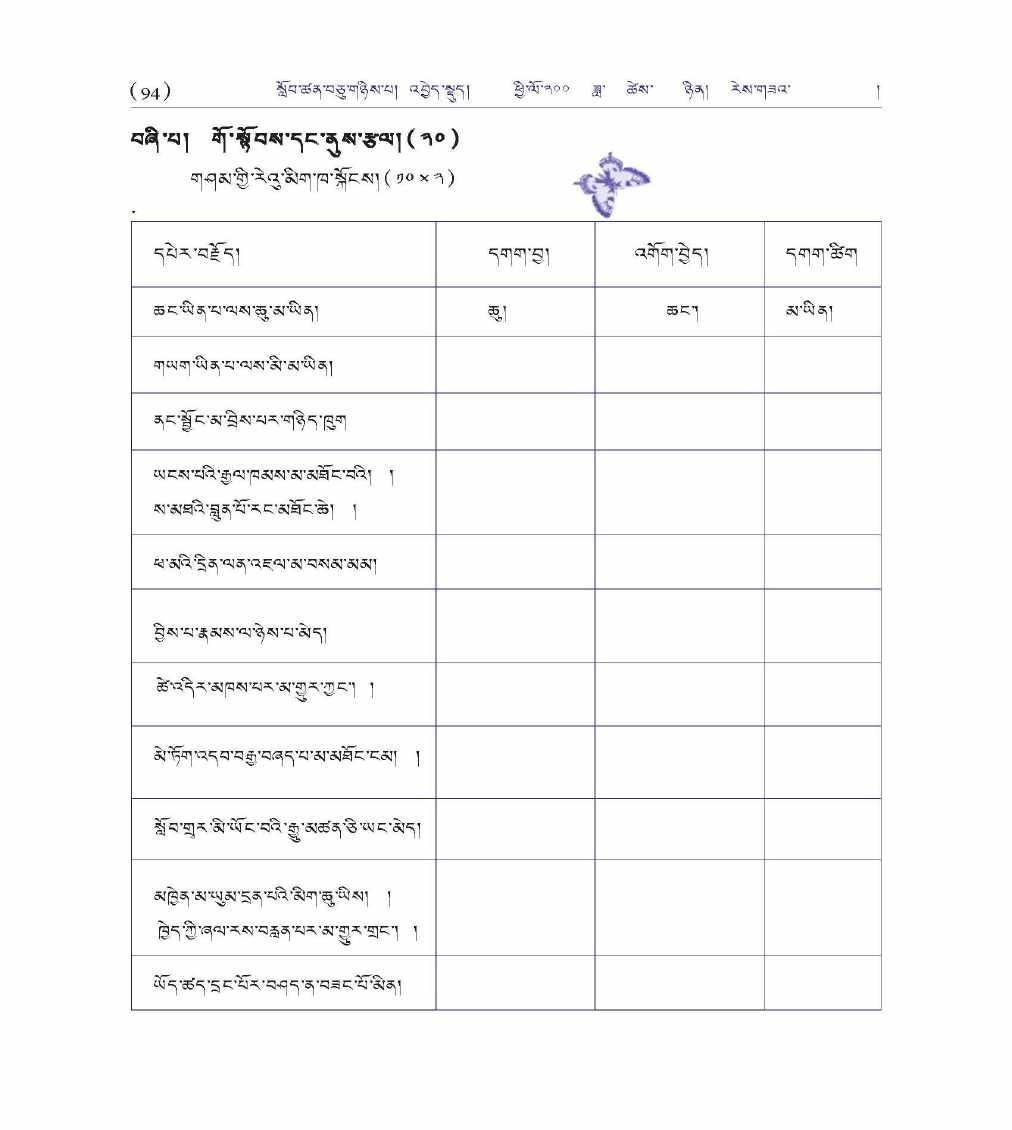 (94) སློབ་ཚན་བཅུ་གཉིས་པ། འབྱེད་སྡུད། ཕྱི་ལོ་༢༠༠ ཟླ་ ཚེས་ ཉིན། རེས་གཟའ་ །
བཞི་པ། གོ་སྟོབས་དང་ནུས་རྩལ། (༢༠)
གཤམ་གྱི་རེའུ་མིག་ཁ་སྐོངས། (༡༠ × ༢)
དཔེར་བརྗོད། དགག་བྱ། འགོག་བྱེད། དགག་ཚིག
ཆང་ཡིན་པ་ལས་ཆུ་མ་ཡིན། ཆུ། ཆང་། མ་ཡིན།
གཡག་ཡིན་པ་ལས་མི་མ་ཡིན།
ནང་སྦྱོང་མ་བྲིས་པར་གཉིད་ཁུག
ཡངས་པའི་རྒྱལ་ཁམས་མ་མཐོང་བའི། །
ས་མཐའི་བླུན་པོ་རང་མཐོང་ཆེ། །
ཕ་མའི་དྲིན་ལན་འཇལ་མ་བསམ་མམ།
བྱིས་པ་རྣམས་ལ་ཉེས་པ་མེད།
ཚེ་འདིར་མཁས་པར་མ་གྱུར་ཀྱང་། །
མེ་ཏོག་འདབ་བརྒྱ་བཞད་པ་མ་མཐོང་ངམ། །
སློབ་གྲྭར་མི་ཡོང་བའི་རྒྱུ་མཚན་ཅི་ཡང་མེད།
མཁྱེན་མ་ཡུམ་དྲན་པའི་མིག་ཆུ་ཡིས། །
ཁྱེད་ཀྱི་ཞལ་རས་བརླན་པར་མ་གྱུར་གྲང་། །
ཡོད་ཚད་དྲང་པོར་བཤད་ན་བཟང་པོ་མིན།